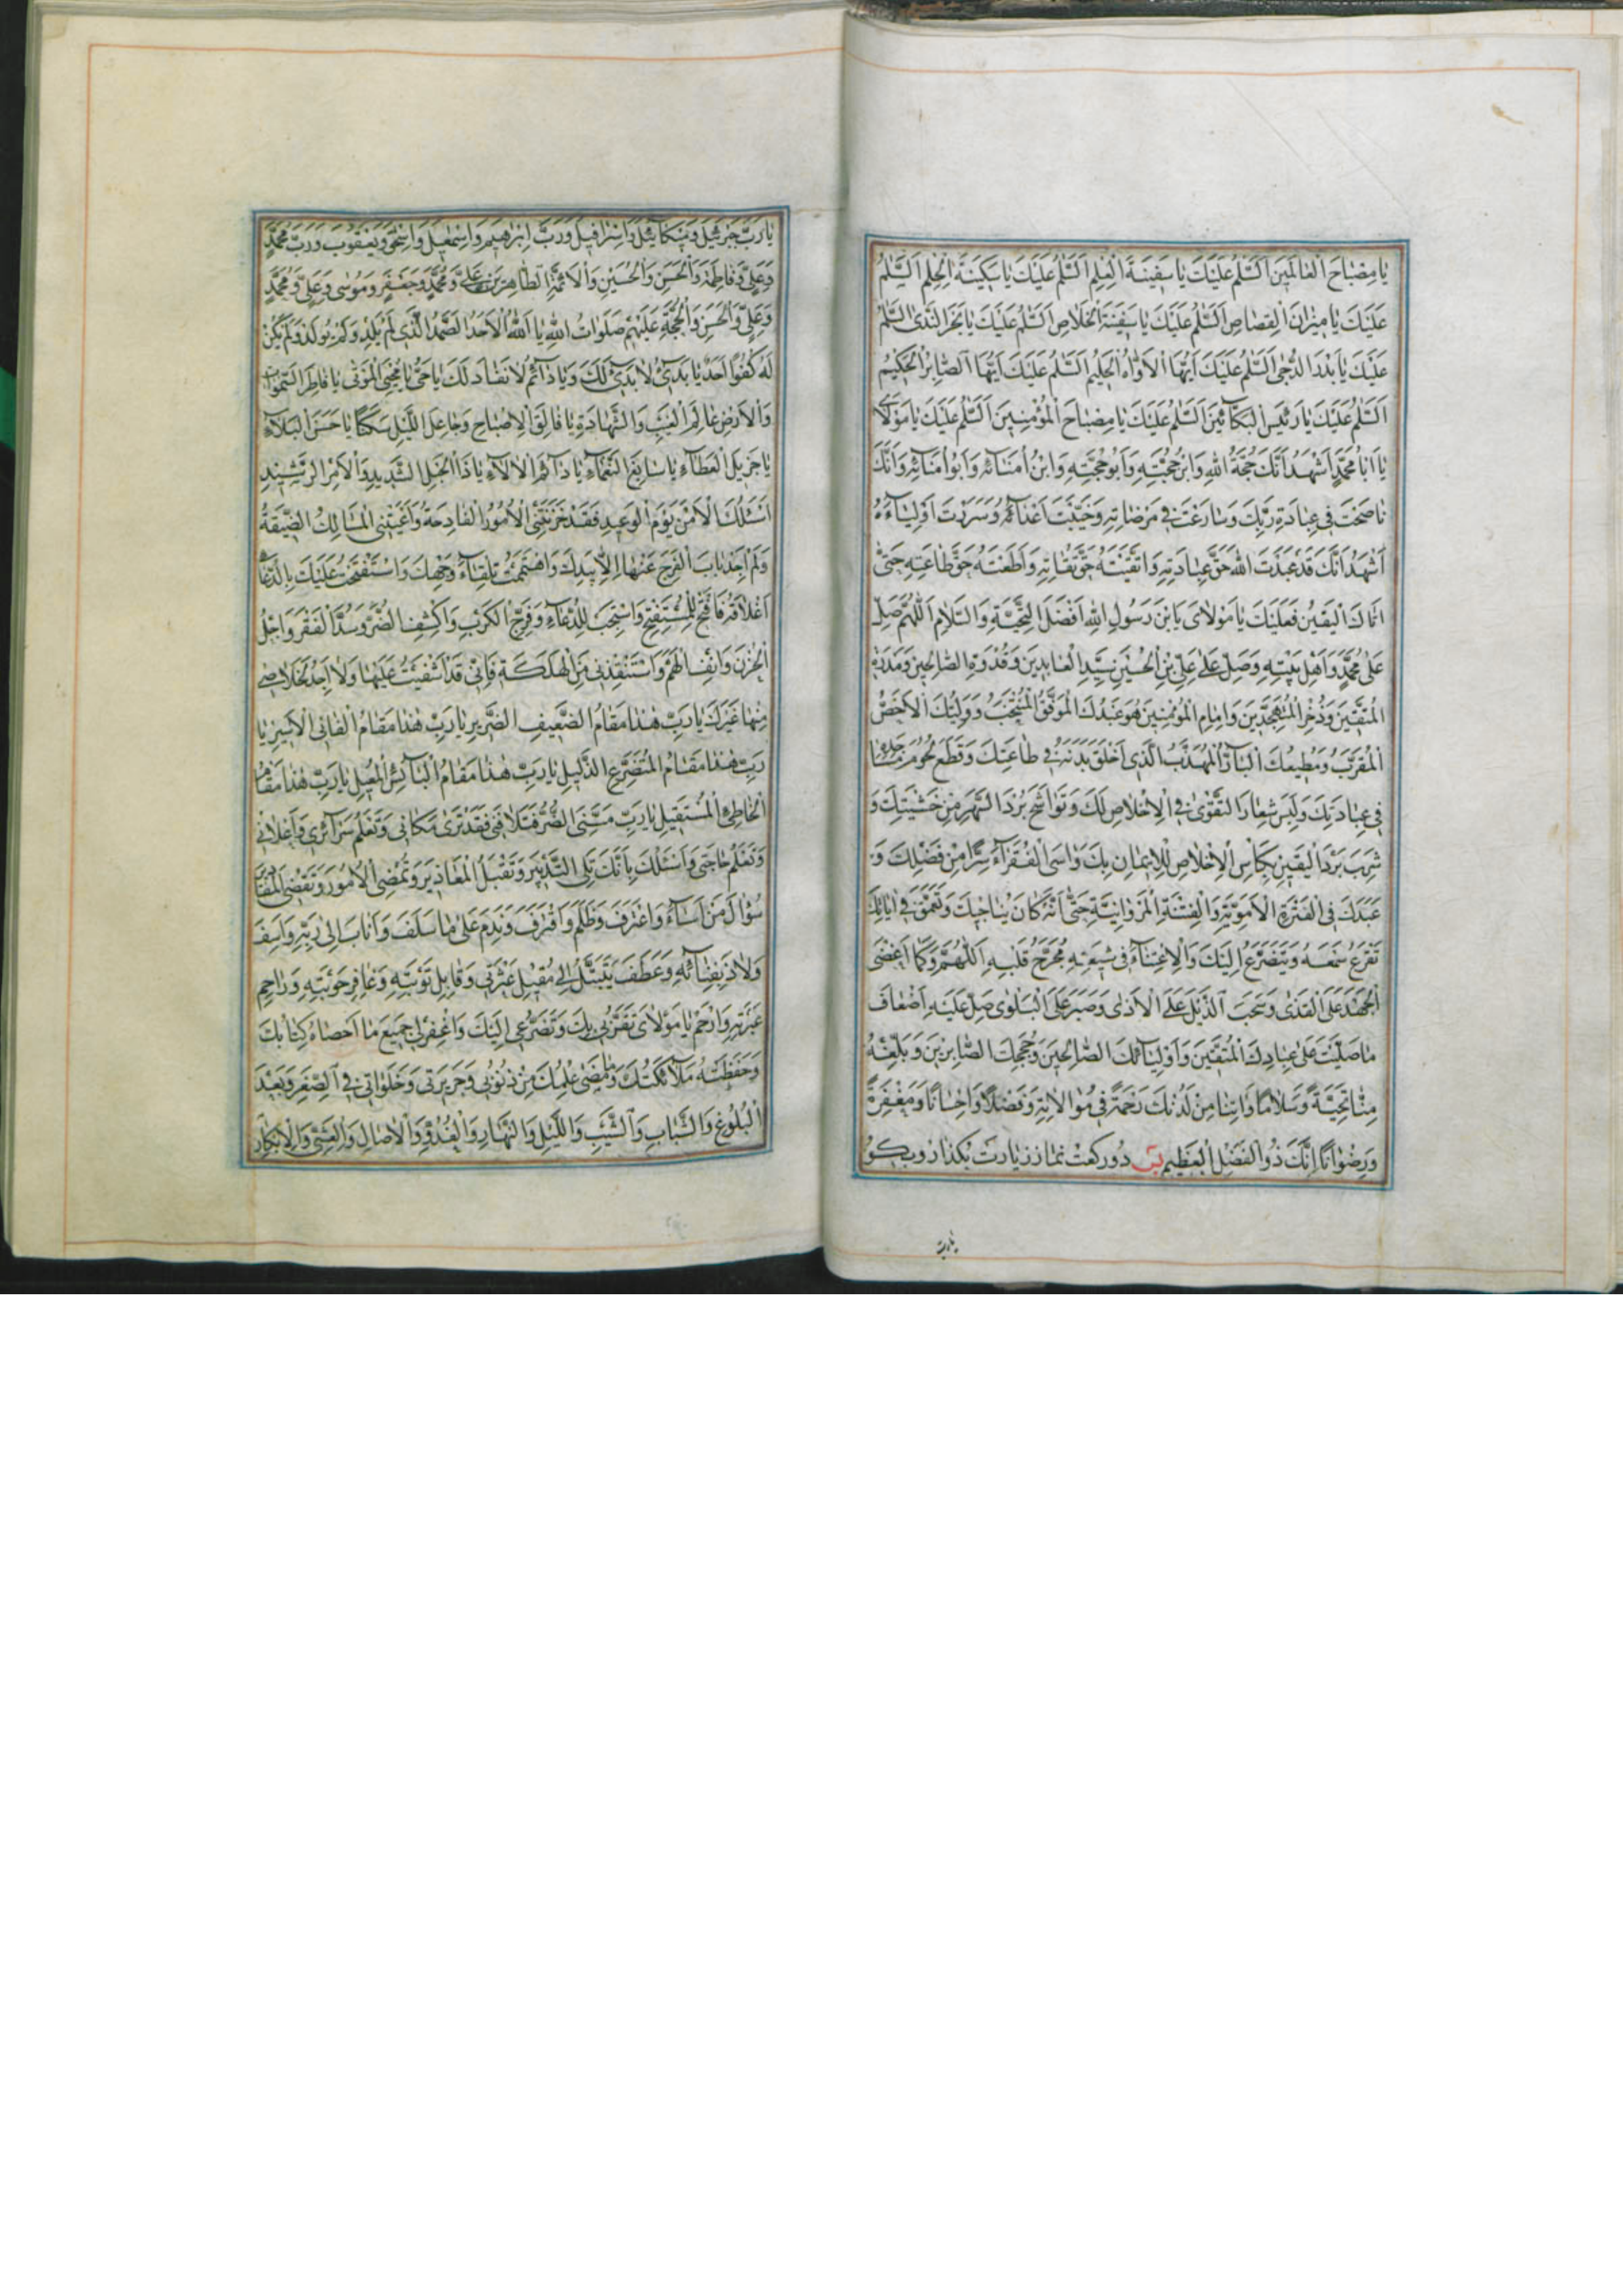 يا مِصْباحَ الْعالَمينَ اَلسَّلامُ عَلَيْكَ يا سَفينَةَ الْعِلْمِ اَلسَّلامُ عَلَيْكَ يا سَكينَةَ الْحِلْمِ اَلسَّلامُ
عَلَيْكَ يا ميزانَ الْقِصاصِ اَلسَّلامُ عَلَيْكَ يا سَفينَةَ الْخَلاصِ اَلسَّلامُ عَلَيْكَ يا بَحْرَ النَّدىٰ اَلسَّلامُ
عَلَيْكَ يا بَدْرَ الدُّجىٰ اَلسَّلامُ عَلَيْكَ اَيُّهَا الْاَوّاهُ الْحَليمُ اَلسَّلامُ عَلَيْكَ اَيُّهَا الصّابِرُ الْحَكيمُ
اَلسَّلامُ عَلَيْكَ يا رَئيسَ الْبَكّائينَ اَلسَّلامُ عَلَيْكَ يا مِصْباحَ الْمُؤْمِنينَ اَلسَّلامُ عَلَيْكَ يا مَوْلايَ
يا اَبا مُحَمَّدٍ اَشْهَدُ اَنَّكَ حُجَّةُ اللهِ وَابْنُ حُجَّتِهِ وَاَبُو حُجَجِهِ وَابْنُ اُمَنائِهِ وَاَبُو اُمَنائِهِ وَاَنَّكَ
ناصَحْتَ في عِبادَةِ رَبِّكَ وَسارَعْتَ في مَرْضاتِهِ وَخَيَّبْتَ اَعْداءَهُ وَسَرَرْتَ اَوْلِياءَهُ
اَشْهَدُ اَنَّكَ قَدْ عَبَدْتَ اللهَ حَقَّ عِبادَتِهِ وَاتَّقَيْتَهُ حَقَّ تُقاتِهِ وَاَطَعْتَهُ حَقَّ طاعَتِهِ حَتّىٰ
اَتاكَ الْيَقينُ فَعَلَيْكَ يا مَوْلايَ يَا بْنَ رَسُولِ اللهِ اَفْضَلُ التَّحِيَّةِ وَالسَّلامِ اَللّٰهُمَّ صَلِّ
عَلىٰ مُحَمَّدٍ وَاَهْلِ بَيْتِهِ وَصَلِّ عَلىٰ عَلِيِّ بْنِ الْحُسَيْنِ سَيِّدِ الْعابِدينَ وَقُدْوَةِ الصّالِحينَ
الْمُتَّقينَ وَذُخْرِ الْمُتَهَجِّدينَ وَاِمامِ الْمُؤْمِنينَ هُوَ عَبْدُكَ الْمُوَفَّقُ الْمُنْتَجَبُ وَوَلِيُّكَ الْاَخَصُّ
الْمُقَرَّبُ وَمُطيعُكَ الْبارُّ الْمُهَذَّبُ الَّذي اَخْلَقَ بَدَنَهُ في طاعَتِكَ وَقَطَعَ
في عِبادَتِكَ وَلَبِسَ شِعارَ التَّقْوىٰ فِي الْاِخْلاصِ لَكَ وَتَواشَحَ بُرْدَ السَّهَرِ مِنْ خَشْيَتِكَ وَ
شَرِبَ بَرْدَ الْيَقينِ بِكَاْسِ الْاِخْلاصِ لِلْايمانِ بِكَ وَواسَى الْفُقَراءَ سِرًّا مِنْ فَضْلِكَ وَ
عَبَدَكَ فِي الْفَتْرَةِ الْاُمَوِيَّةِ وَالْفِتْنَةِ الْمَرْوانِيَّةِ حَتّىٰ اَنَّهُ كانَ يُناجيكَ
تَقْرَعُ سَمْعَهُ وَيَتَضَرَّعُ اِلَيْكَ وَالْاِعْتِناءُ في شيعَتِهِ يُجَرِّحُ قَلْبَهُ اَللّٰهُمَّ وَكَما اَغْضَى
الْجُهْدَ عَلَى الْقَذىٰ وَسَحَبَ الذَّيْلَ عَلَى الْاَذىٰ وَصَبَرَ عَلَى الْبَلْوىٰ صَلِّ عَلَيْهِ اَضْعافَ
ما صَلَّيْتَ عَلىٰ عِبادِكَ الْمُتَّقينَ وَاَوْلِيائِكَ الصّالِحينَ وَحُجَجِكَ الصّابِرينَ وَبَلِّغْهُ
مِنّا تَحِيَّةً وَسَلامًا وَاٰتِنا مِنْ لَدُنْكَ رَحْمَةً في مُوالاتِهِ وَفَضْلًا وَاِحْسانًا وَمَغْفِرَةً
وَرِضْوانًا اِنَّكَ ذُو الْفَضْلِ الْعَظيمِ پس دو ركعت نماز زيارت بكذار وبكو
يا رب
يا رَبَّ جَبْرَئيلَ وَميكائيلَ وَاِسْرافيلَ وَرَبَّ اِبْرٰهيمَ وَاِسْمٰعيلَ وَاِسْحٰقَ وَيَعْقُوبَ وَرَبَّ مُحَمَّدٍ
وَعَلِيٍّ وَفاطِمَةَ وَالْحَسَنِ وَالْحُسَيْنِ وَالْاَئِمَّةِ الطّاهِرينَ عَلِيٍّ وَمُحَمَّدٍ وَجَعْفَرٍ وَمُوسىٰ وَعَلِيٍّ وَمُحَمَّدٍ
وَعَلِيٍّ وَالْحَسَنِ وَالْحُجَّةِ عَلَيْهِمْ صَلَواتُ اللهِ يا اَللهُ الْاَحَدُ الصَّمَدُ الَّذي لَمْ يَلِدْ وَلَمْ يُولَدْ وَلَمْ يَكُنْ
لَهُ كُفُوًا اَحَدٌ يا بَديءُ لا بَديءَ لَكَ وَيا دائِمُ لا نَفادَ لَكَ يا حَيُّ يا مُحْيِيَ الْمَوْتىٰ يا فاطِرَ السَّمٰواتِ
وَالْاَرْضِ عالِمَ الْغَيْبِ وَالشَّهادَةِ يا فالِقَ الْاِصْباحِ وَجاعِلَ اللَّيْلِ سَكَنًا يا حَسَنَ الْبَلاءِ
يا جَزيلَ الْعَطاءِ يا سابِغَ النَّعْماءِ يا دائِمَ الْاٰلاءِ يا ذَا الْحَبْلِ الشَّديدِ وَالْاَمْرِ الرَّشيدِ
اَسْئَلُكَ الْاَمْنَ يَوْمَ الْوَعيدِ فَقَدْ حَزَبَتْنِي الْاُمُورُ الْفادِحَةُ وَاَعْيَتْنِي الْمَسالِكُ الضَّيِّقَةُ
وَلَمْ اَجِدْ بابَ الْفَرَجِ عَنْها اِلّا بِيَدِكَ وَاهْتَمَمْتُ تِلْقاءَ وَجْهِكَ وَاسْتَفْتَحْتُ عَلَيْكَ بِالدُّعاءِ
اَغْلاقَهُ فَافْتَحْ لِلْمُسْتَفْتِحِ وَاسْتَجِبْ لِلدُّعاءِ وَفَرِّجِ الْكَرْبَ وَاكْشِفِ الضُّرَّ وَسُدَّ الْفَقْرَ وَاجْلُ
الْحُزْنَ وَانْفِ الْهَمَّ وَاسْتَنْقِذْني مِنَ الْهَلَكَةِ فَاِنّي قَدْ اَشْفَيْتُ عَلَيْها وَلا اَجِدُ لِخَلاصي
مِنْها غَيْرَكَ يا رَبِّ هٰذا مَقامُ الضَّعيفِ الضَّريرِ يا رَبِّ هٰذا مَقامُ الْعانِي الْاَسيرِ يا
رَبِّ هٰذا مَقامُ الْمُتَضَرِّعِ الذَّليلِ يا رَبِّ هٰذا مَقامُ الْبائِسِ الْمُعيلِ يا رَبِّ هٰذا مَقامُ
الْخاطِئِ الْمُسْتَقيلِ يا رَبِّ مَسَّنِيَ الضُّرُّ فَتَلافَني فَقَدْ تَرىٰ مَكاني وَتَعْلَمُ سَرائِري وَاِعْلاني
وَتَعْلَمُ حاجَتي وَاَسْئَلُكَ بِاَنَّكَ تَلِي التَّدْبيرَ وَتَقْبَلُ الْمَعاذيرَ وَتُمْضِي الْاُمُورَ وَتَقْضِي
سُؤالَ مَنْ اَساءَ وَاعْتَرَفَ وَظَلَمَ وَاقْتَرَفَ وَنَدِمَ عَلىٰ ما سَلَفَ وَاَنابَ اِلىٰ رَبِّهِ وَاَسِفَ
وَلاذَ بِفِنائِهِ وَعَطَفَ يَتَبَتَّلُ اِلىٰ مُقيلِ عَثْرَتي وَقابِلِ تَوْبَتِهِ وَغافِرِ حَوْبَتِهِ وَراحِمِ
عَبْرَتِهِ وَارْحَمْ يا مَوْلايَ تَقَرُّبي بِكَ وَتَضَرُّعي اِلَيْكَ وَاغْفِرْ لي جَميعَ ما اَحْصاهُ كِتابُكَ
وَحَفَظَتْهُ مَلائِكَتُكَ وَمَضىٰ عِلْمُكَ مِنْ ذُنُوبي وَجَريرَتي وَخَلَواتي فِي الصِّغَرِ وَبَعْدَ
الْبُلُوغِ وَالشَّبابِ وَالشَّيْبِ وَاللَّيْلِ وَالنَّهارِ وَالْغُدُوِّ وَالْاٰصالِ وَالْعَشِيِّ وَالْاِبْكارِ